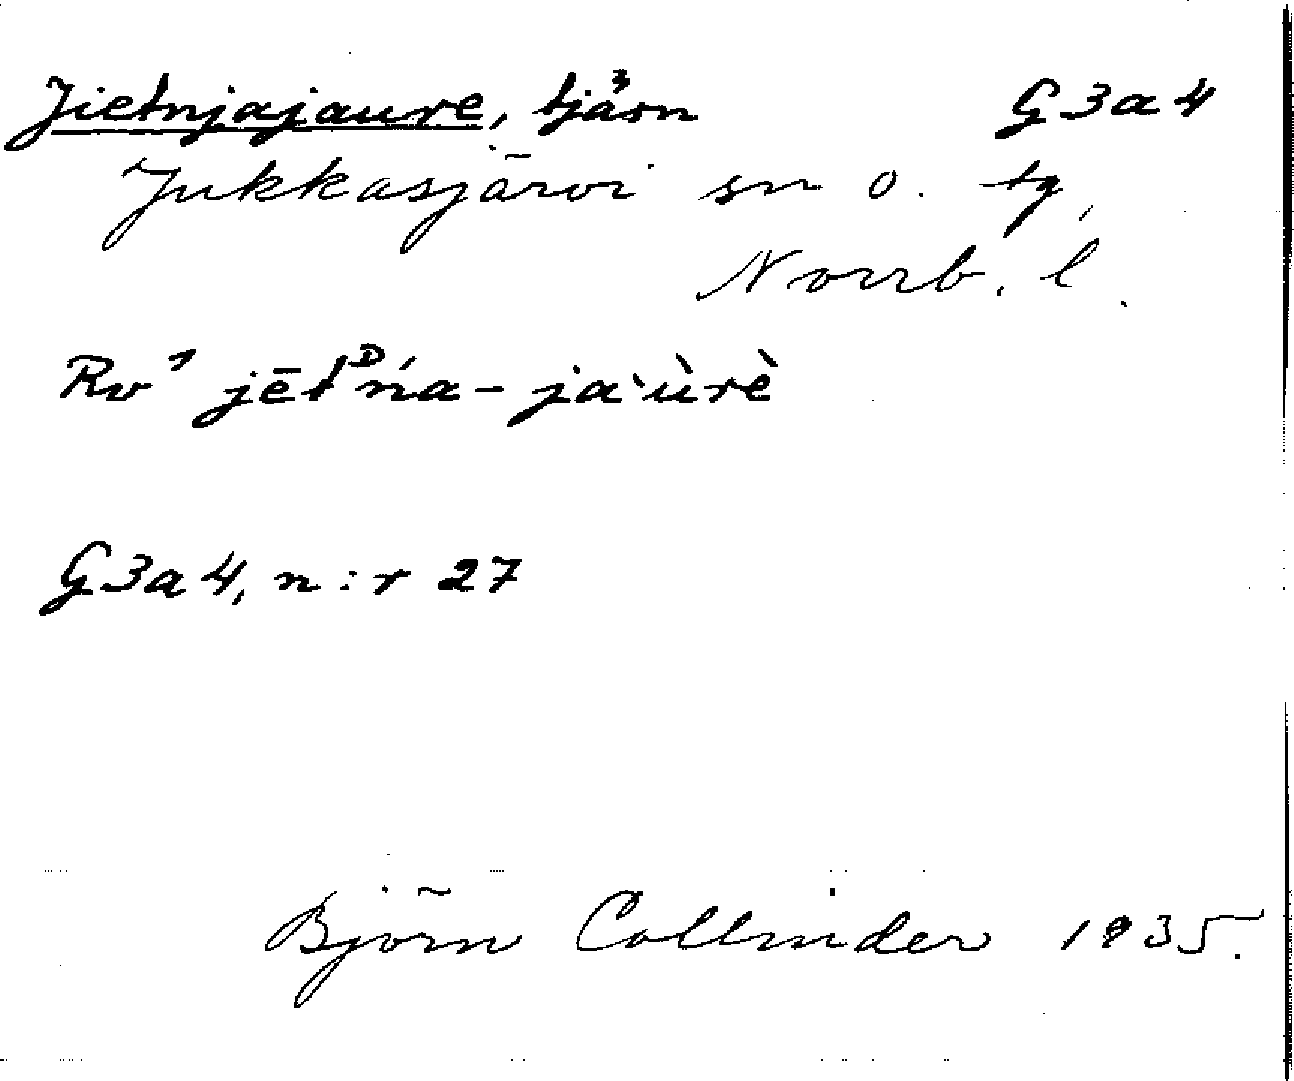 Jietnjajaure, tjärn G3a4
Jukkasjärvi sn o. tg,
Norrb. l.
Rv¹ jēt́ᴰńa-ja`ùrè
G3a4, n:r 27
Björn Collinder 1935.